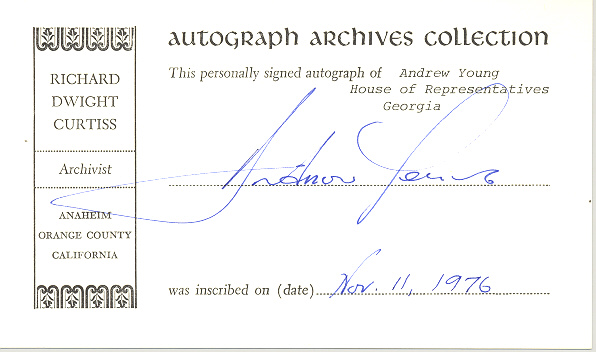 RICHARD
DWIGHT
CURTISS
Archivist
ANAHEIM
ORANGE COUNTY
CALIFORNIA
AUTOGRAPH ARCHIVES COLLECTION
This personally signed autograph of Andrew Young
House of Representatives
Georgia
Andrew Young
was inscribed on (date) Nov. 11, 1976